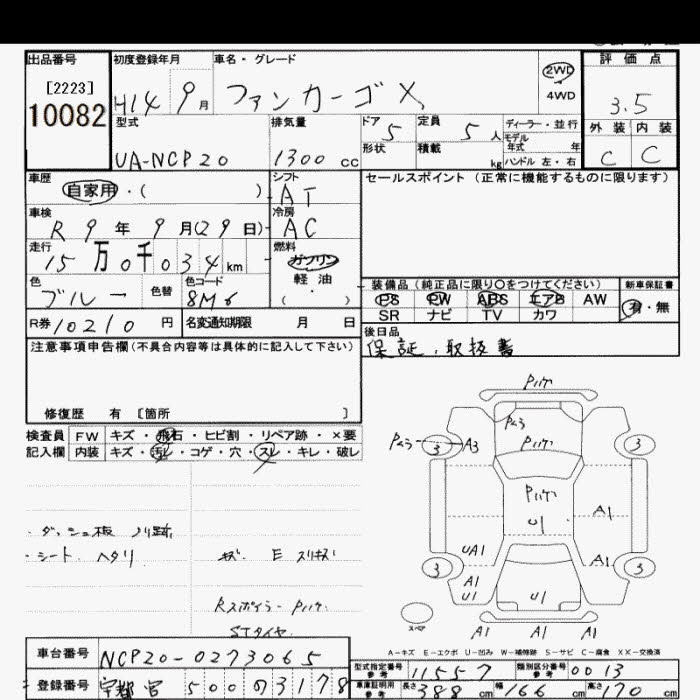 出品番号 初度登録年月 車名・グレード 評価点
[2223]
10082
H14 9月 ファンカーゴ X
2WD
4WD
3.5
型式 排気量 ドア 定員 ディーラー・並行
UA-NCP20 1300 cc 5 5人 モデル年式 年
形状 積載 kg ハンドル 左・右
外装 内装
C C
車歴 シフト セールスポイント(正常に機能するものに限ります)
自家用・( ) AT
車検 冷房
R9年9月(29日) AC
走行 燃料
15万0千034km ガソリン
軽油
( ・ )
色 色替 色コード
ブルー 8M6
装備品(純正品に限り○をつけてください) 新車保証書
PS PW ABS エアB AW 有・無
SR ナビ TV カワ
R券 10210 円 名変通知期限 月 日
後日品
保証.取扱書
注意事項申告欄(不具合内容等は具体的に記入して下さい)
修復歴 有 [箇所 ]
検査員 FW キズ・飛石・ヒビ割・リペア跡・×要
記入欄 内装 キズ・汚レ・コゲ・穴・スレ・キレ・破レ
・ダッシュ板 ノリ跡
・シート ヘタリ
キズ E スリキズ
Rスポイラー Pハゲ
STタイヤ
Pハゲ
Pムラ
Pムラ 3 A3 Pハゲ 3
Pハゲ
U1 A1
UA1 A1
3 3
A1
U1 U1
スペア A1 A1 A1
A-キズ E-エクボ U-凹み W-補修跡 S-サビ C-腐食 XX-交換済
車台番号 NCP20-0273065
登録番号 宇都宮 500 の 3178
型式指定番号 参考 11557 類別区分番号 参考 0013
車庫証明用 参考 長さ 388 cm 幅 166 cm 高さ 170 cm